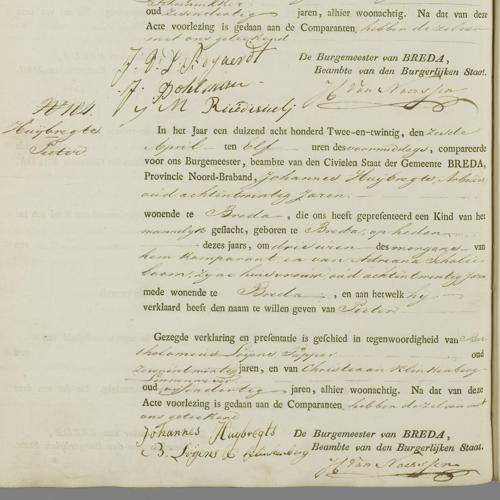 oud zesendertig jaren, alhier woonachtig. Na dat van deze
Acte voorlezing is gedaan aan de Comparanten hebben dezelven
met ons geteekend
De Burgemeester van BREDA,
Beambte van den Burgerlijken Staat.
J. Dohlman
H Van Naerssen
N° 184.
Huybregts
Pieter
In het Jaar een duizend acht honderd Twee-en-twintig, den zesde
April ten Elf uren des voormiddags, compareerde
voor ons Burgemeester, beambte van den Civielen Staat der Gemeente BREDA,
Provincie Noord-Braband, Johannes Huybregts, Arbeider
oud achtentwintig Jaren
wonende te Breda, die ons heeft gepresenteerd een Kind van het
mannelyk geslacht, geboren te Breda, op heden
dezes jaars, om drie uren des morgens van
hem komparant, en van Adriana Schale
boom, zyne huisvrouw, oud achtentwintig Jaren
mede wonende te Breda, en aan hetwelk hy
verklaard heeft den naam te willen geven van Pieter
Gezegde verklaring en presentatie is geschied in tegenwoordigheid van Bar
tholomeus Seyens Tapper oud
jaren, en van Christiaan Klinkenberg
oud jaren, alhier woonachtig. Na dat van deze
Acte voorlezing is gedaan aan de Comparanten hebben dezelven met
ons geteekend
Johannes Huybregts
De Burgemeester van BREDA,
B. Seyens C Klinkenberg
Beambte van den Burgerlijken Staat.
H Van Naerssen